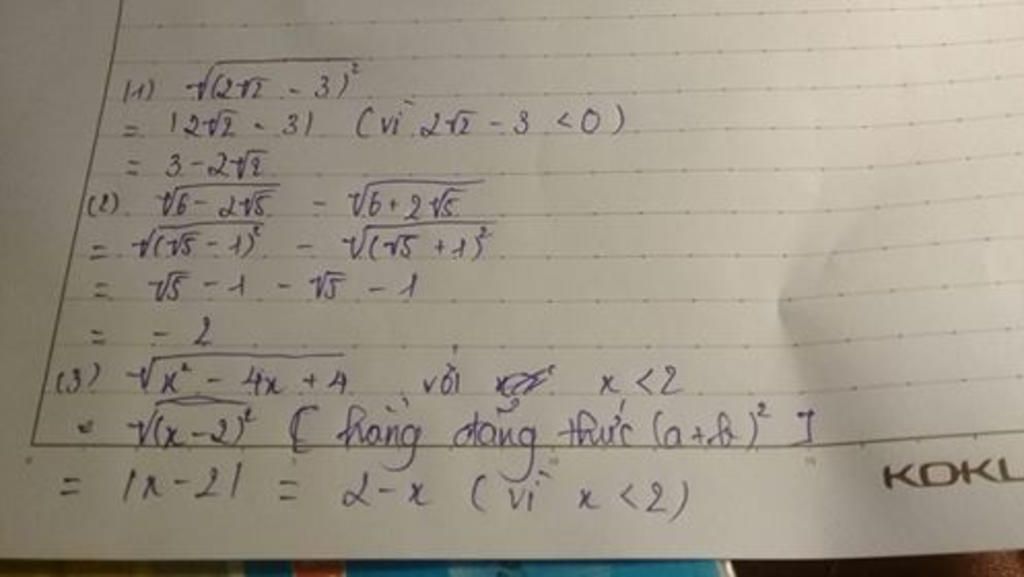 (1) √(2√2 - 3)²
= |2√2 - 3| (vì 2√2 - 3 < 0)
= 3 - 2√2
(2) √6 - 2√5 - √6 + 2√5
= √(√5 - 1)² - √(√5 + 1)²
= √5 - 1 - √5 - 1
= - 2
(3) √x² - 4x + 4 với x < 2
= √(x - 2)² [ hằng đẳng thức (a+b)² ]
= |x - 2| = 2 - x (vì x < 2)
KOKU